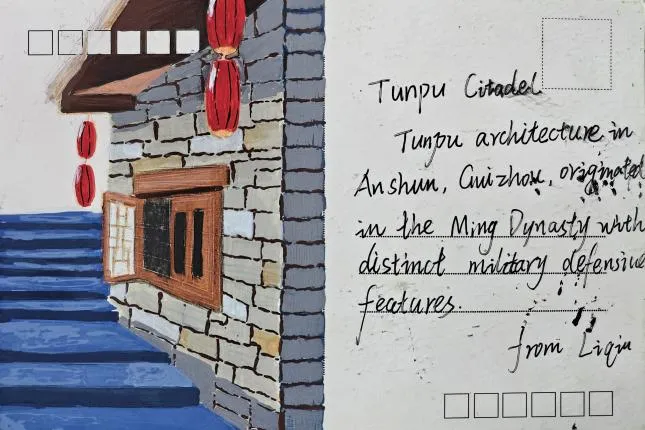 Tunpu Citadel
Tunpu architecture in
Anshun, Guizhou, originated
in the Ming Dynasty with
distinct military defensive
features.
from Liqiu